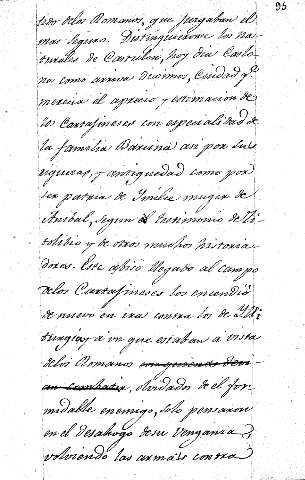 95
tido de los Romanos, que juzgaban el
mas seguro. Distinguieronse los na-
turales de Castulon, hoy dia Cazlo-
na como arriva deximos, Ciudad qᵉ
merecia el aprecio y estimacion de
los Cartajineses con especialidad de
la familia Barcina asi por sus
riquezas, y antiguedad como por
ser patria de Imilce muger de
Anibal, segun el testimonio de Ti-
to Libio y de otros muchos historia-
dores. Este abiso llegado al campo
de los Cartajineses los encendió
de nuevo en ira contra los de Yli-
turgis, a un que estaban a vista
de los Romanos
olvidados de el for-
midable enemigo, solo pensaron
en el desahogo de su venganza,
volviendo las armas contra